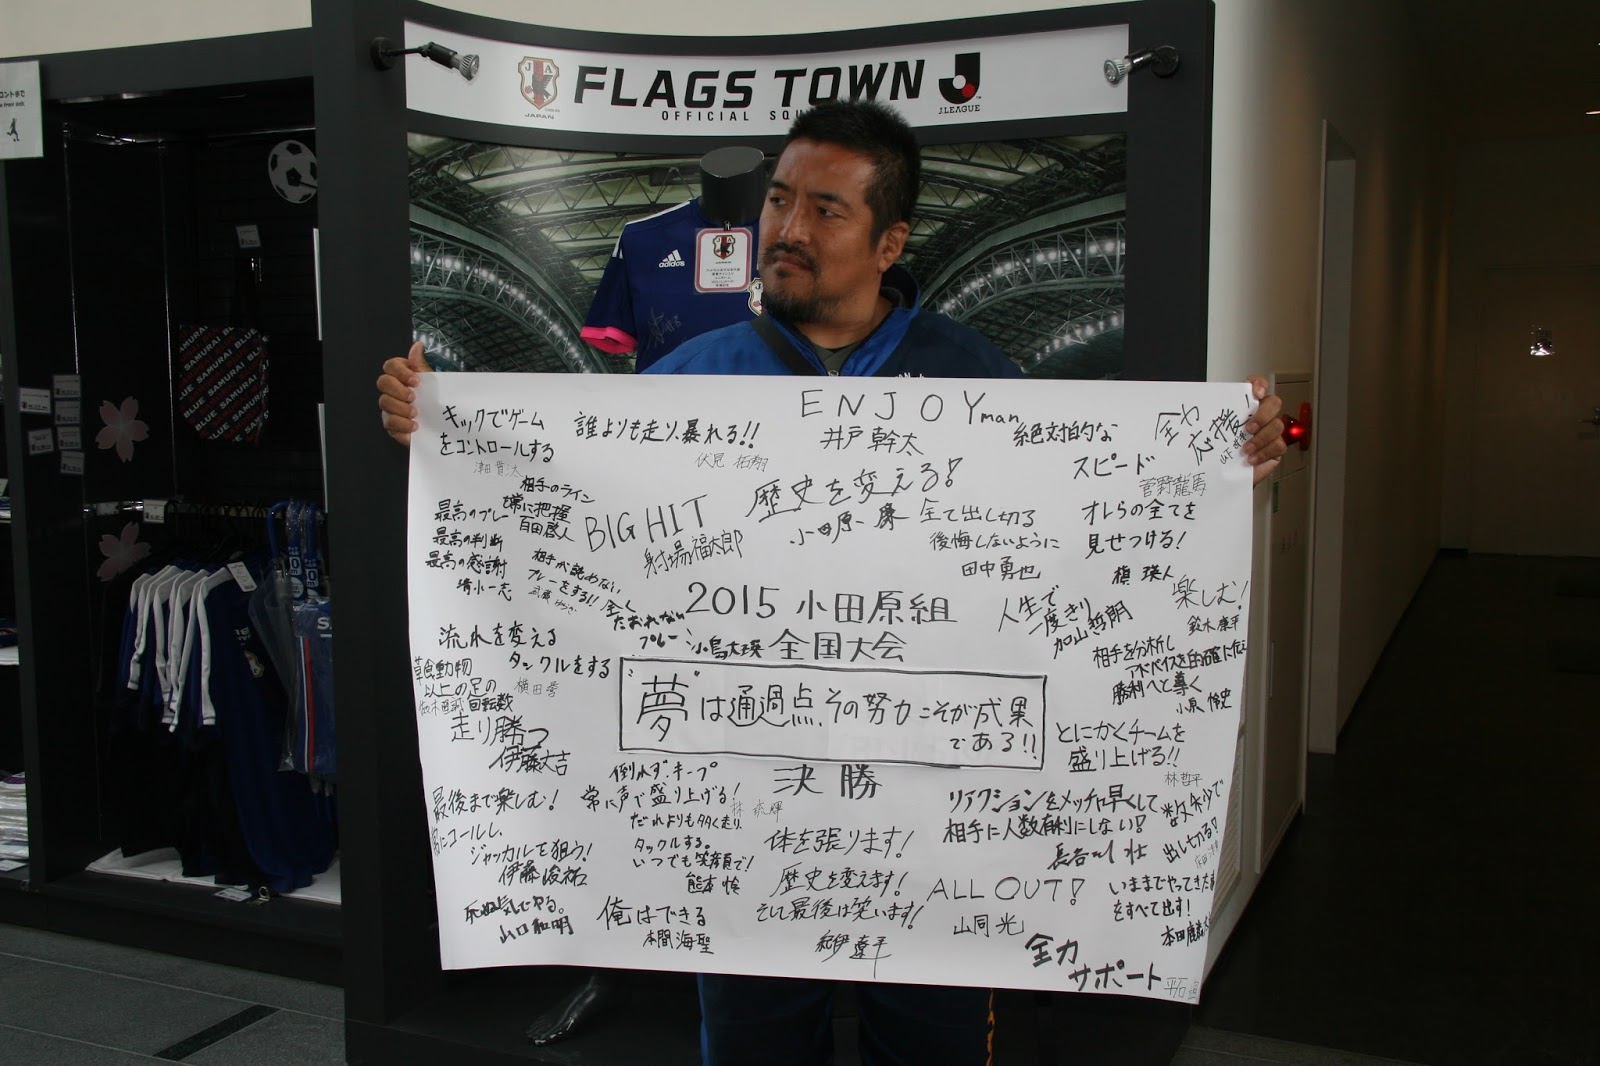 JAPAN
FLAGS TOWN
OFFICIAL
J.LEAGUE
adidas
BLUE SAMURAI
ENJOYman
井戸幹太
キックでゲーム
をコントロールする
誰よりも走り、暴れる!!
伏見 拓翔
絶対的な
スピード
菅野龍馬
全力
応援!
相手のライン
を常に把握
百田啓人
最高のプレー
最高の判断
最高の感謝
BIG HIT
射場福太郎
歴史を変える!
小田原一慶
全て出し切る
後悔しないように
田中勇也
オレらの全てを
見せつける!
槇 瑛人
相手が読めない
プレーをする!!
全し
たおれない
プレー
小島大瑛
2015 小田原組
全国大会
人生で
一度きり
加山哲朗
楽しむ!
鈴木康平
流れを変える
タックルをする
横田
草食動物
以上の足の
回転数
相手を分析し
アドバイスを的確に伝え
勝利へと導く
走り勝つ
伊藤大吉
"夢"は通過点、その努力こそが成果
である!!
決勝
とにかくチームを
盛り上げる!!
林哲平
倒れず、キープ
常に声で盛り上げる!
だれよりも多く走り、
タックルする。
いつでも笑顔で!
熊本 怜
最後まで楽しむ!
常にコールし、
ジャッカルを狙う!
伊藤俊祐
リアクションをメッチャ早くして
相手に人数有利にしない!
長谷川 壮
出し切る!
体を張ります!
歴史を変えます!
そして最後は笑います!
紀伊 遼平
ALL OUT!
山同 光
いままでやってきた事
をすべて出す!
死ぬ気でやる。
山口和明
俺はできる
本間海聖
全力
サポート
平石